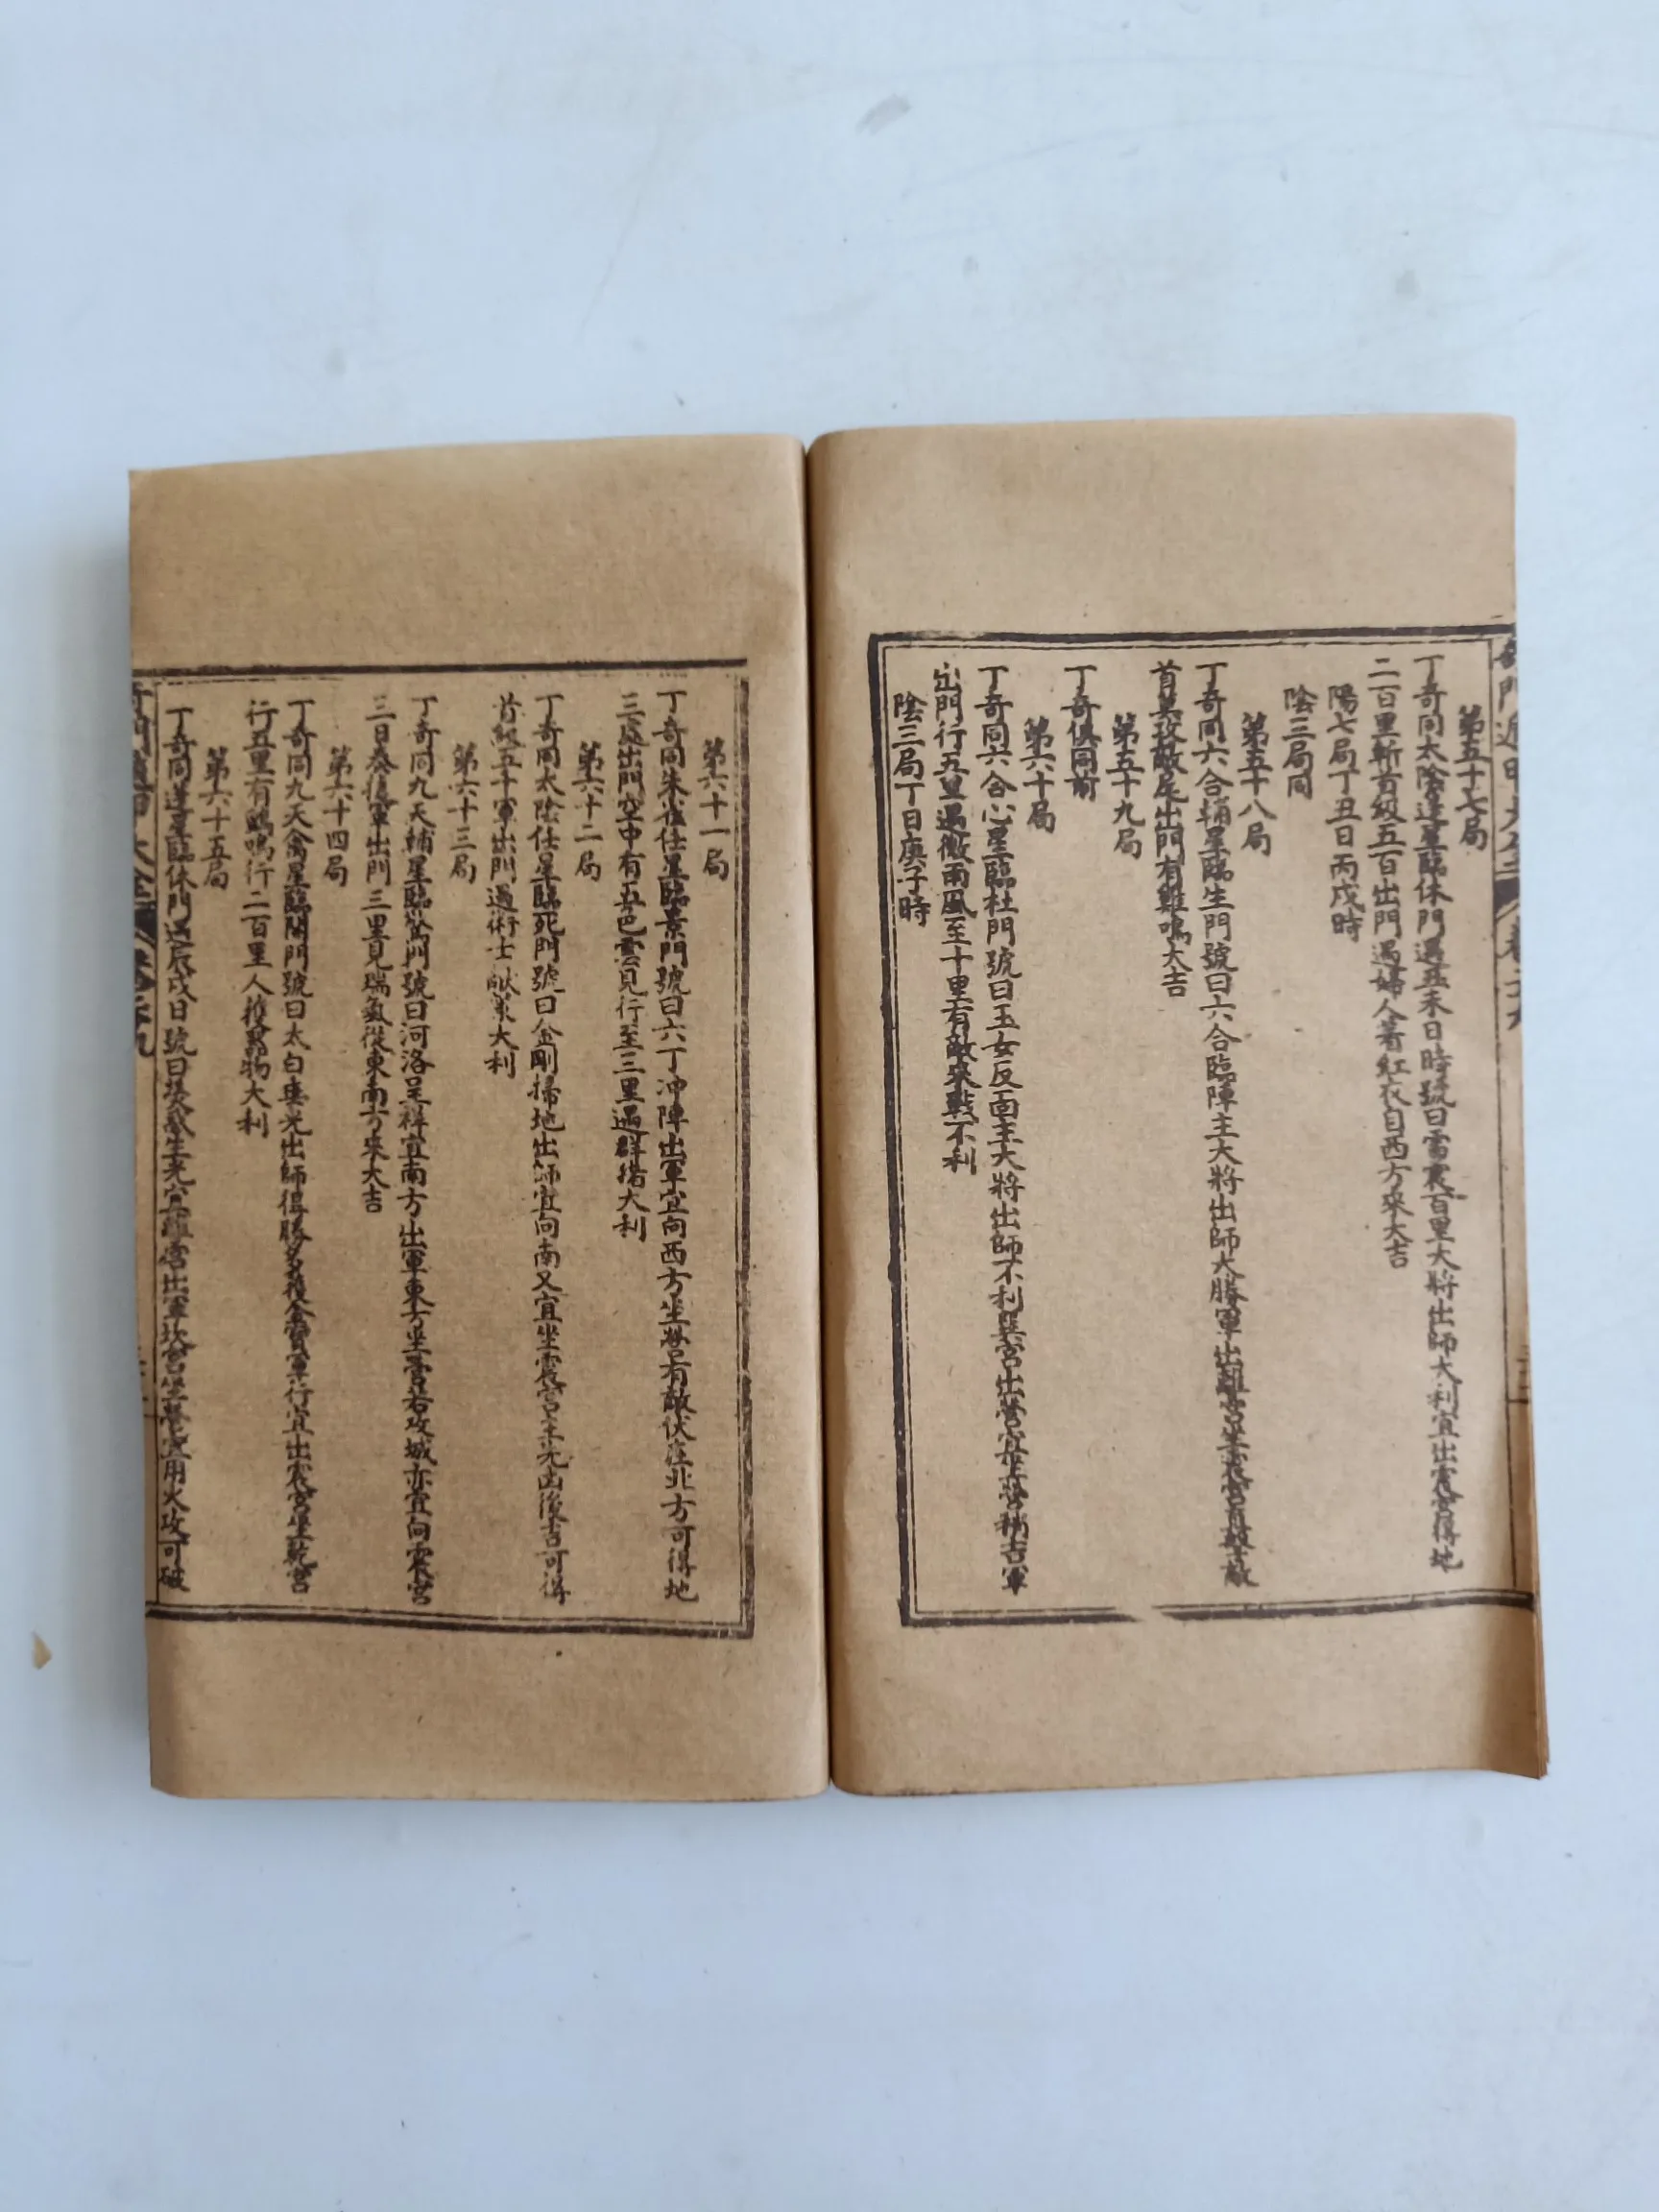 第五十七局
丁奇同太陰逢星臨休門遇丑未日時號曰雷震百里大將出師大利宜出震宮得地
二百里斬首級五百出門遇婦人著紅衣自西方來大吉
陽七局丁丑日丙戌時
陰三局同
第五十八局
丁奇同六合輔星臨生門號曰六合臨陣主大將出師大勝軍出離宮坐震宮首擊敵
首莫攻敵尾出門有雞鳴大吉
第五十九局
丁奇俱同前
第六十局
丁奇同六合心星臨杜門號曰玉女反面主大將出師不利巽宮出營宜坐營稱吉軍
出門行五里遇微雨風至十里有敵來戰不利
陰三局丁日庚子時
第六十一局
丁奇同朱雀任星臨景門號曰六丁冲陣出軍宜向西方坐營有敵伏在北方可得地
三處出門空中有五色雲見行至三里遇群猪大利
第六十二局
丁奇同太陰任星臨死門號曰金剛掃地出師宜向南又宜坐震宮主先凶後吉可得
首級五十軍出門遇術士獻策大利
第六十三局
丁奇同九天輔星臨驚門號曰河洛呈祥宜南方出軍東方坐營若攻城亦宜向震宮
三日泰復軍出門三里見瑞氣從東南方來大吉
第六十四局
丁奇同九天禽星臨開門號曰太白無光出師得勝多獲金寶軍行宜出震宮坐乾宮
行五里有鵶鳴行二百里人獲異物大利
第六十五局
丁奇同逢星臨休門遇辰戌日號曰美感生光宜離宮出軍坎宮坐營宜用火攻可破
奇門遁甲大全 卷二十九